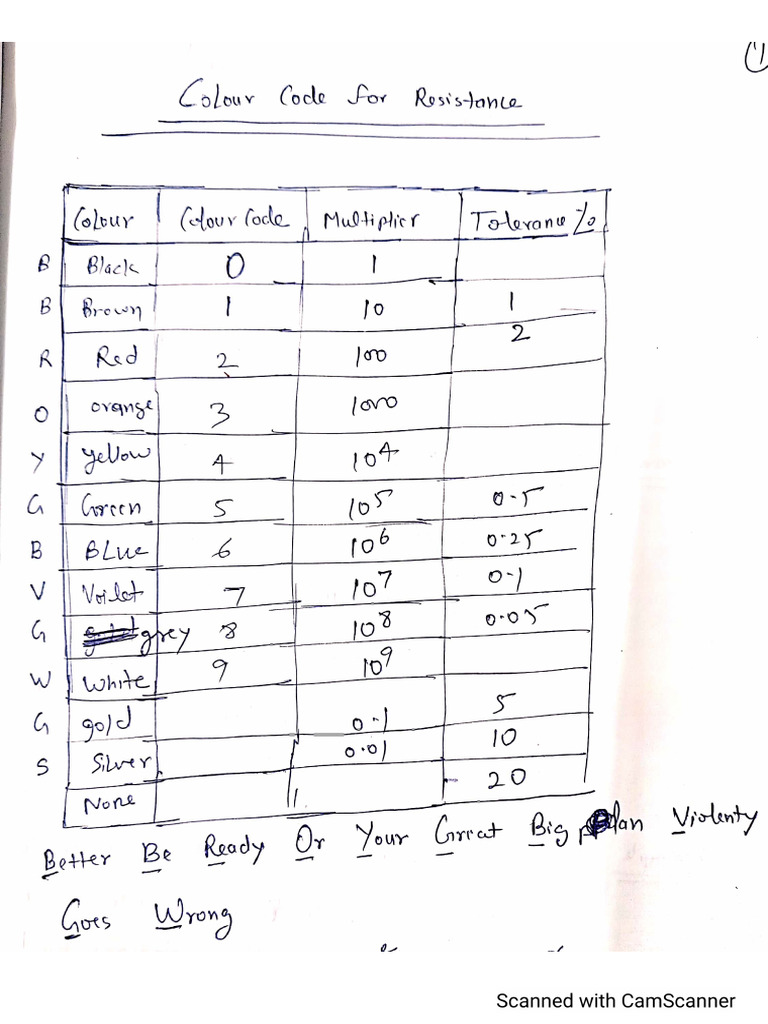 1
Colour Code for Resistance
Colour Colour Code Multiplier Tolerance %
B Black 0 1
B Brown 1 10 1
R Red 2 100 2
O orange 3 1000
Y yellow 4 10⁴
G Green 5 10⁵ 0.5
B BLue 6 10⁶ 0.25
V Voilet 7 10⁷ 0.1
G grey 8 10⁸ 0.05
W White 9 10⁹
G gold 0.1 5
S Silver 0.01 10
None 20
Better Be Ready Or Your Great Big Plan Violenty
Goes Wrong
Scanned with CamScanner